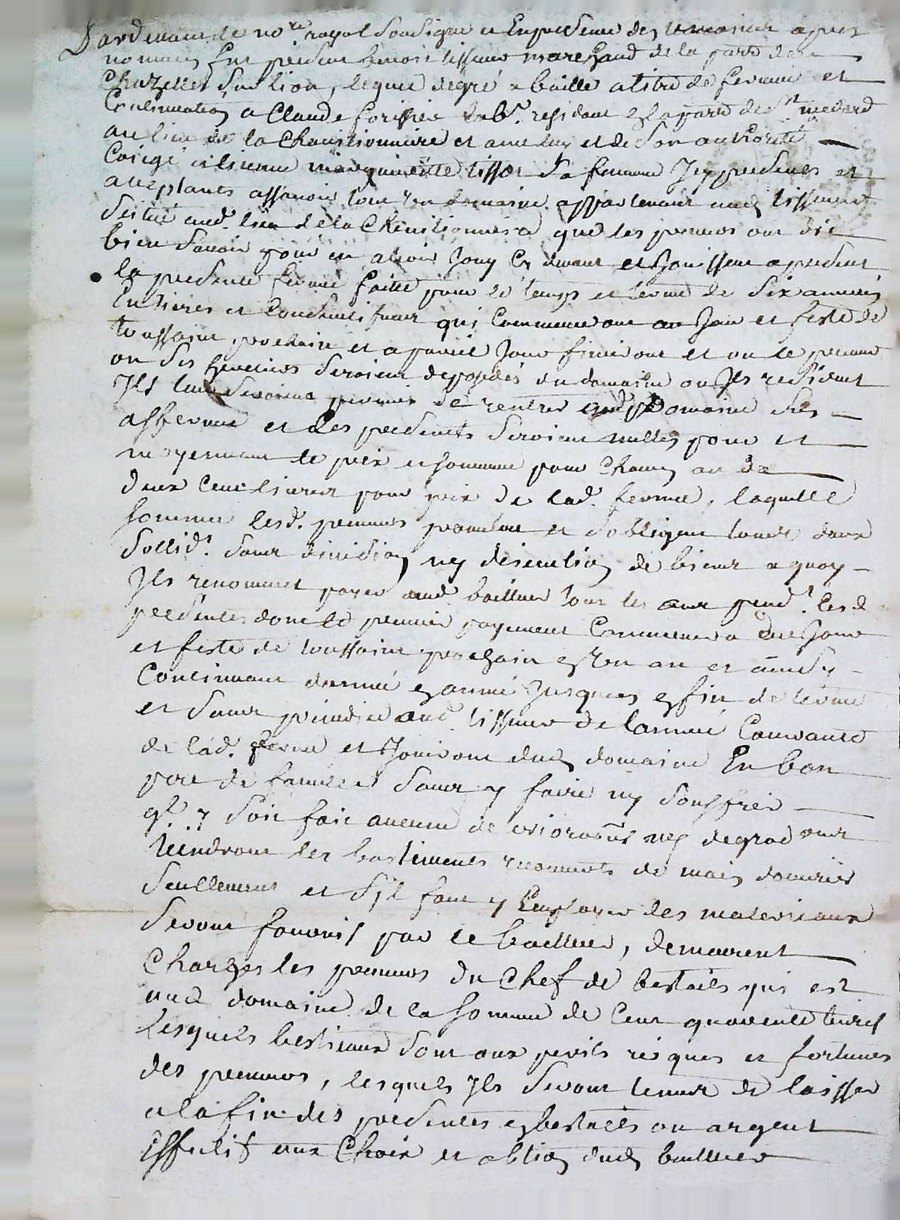 Pardevant le no.re royal soussigne et En presence des temoins apres
nommes fut present benoit tisseur marchand de la par.se de
Chazelles sur lion, lequel degré a baillé a titre de ferme et
Continuation a Claude lab.r residant en la par.se de St medard
au lieu de la et avec luy et de son authorité
Congé tisseur sa femme Icy presents et
acceptants assavoir tout un domaine appartenant aud tisseur
Scitué aud. lieu de la que les preneurs ont dit
bien savoir pour en avoir Jouy Cy devant et Jouissent a present
la presente ferme faitte pour le temps et terme de six années
Entieres et Consecutives qui Commenceront au Jour et feste de
toussaint prochain et a pareil Jour finiront et ou le preneur
ou ses heritiers seroient deposedés du domaine ou Ils resident
Ils leur permis de rentrer aud Domaine
affermé et les presentes seroient nulles pour et
moyennant le prix et somme pour Chacun an de
deux Cent livres pour prix de lad. ferme, laquelle
somme lesd. preneurs promettent et s'obligent tous deux
sollid.t sans division ny discution de biens a quoy
Ils renoncent payer aud bailleur tous les ans pend.t les d
presentes dont le premier payement Commencera dud Jour
et feste de toussaint prochain en un an et ainsy
Continuant d'année en année Jusques en fin de terme
et sans prejudice aud. tisseur de l'année Courante
de lad. ferme et Jouiront dud domaine En bon
pere de famille sans y faire ny souffrir
q.l y soit fait aucune deteriorations ny degradations
tiendront les bastiments de main d'ouvrier
seullement et s'il faut y Employer des materiaux
seront fournis par le bailleur, demeurent
Chargés les preneurs du Chef de bestails qui est
aud domaine de la somme de Cent quarente livres
lesquels bestiaux sont aux perils risques et fortunes
des preneurs, lesquels Ils seront tenus de laisser
a la fin des presentes en bestails ou argent
Effectif aux Choix et obtion dud bailleur